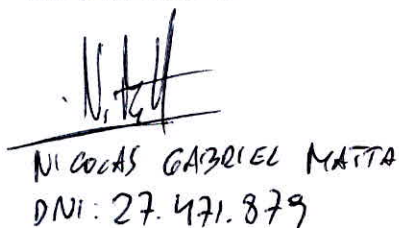 NICOLAS GABRIEL MATTA
DNI: 27.471.879